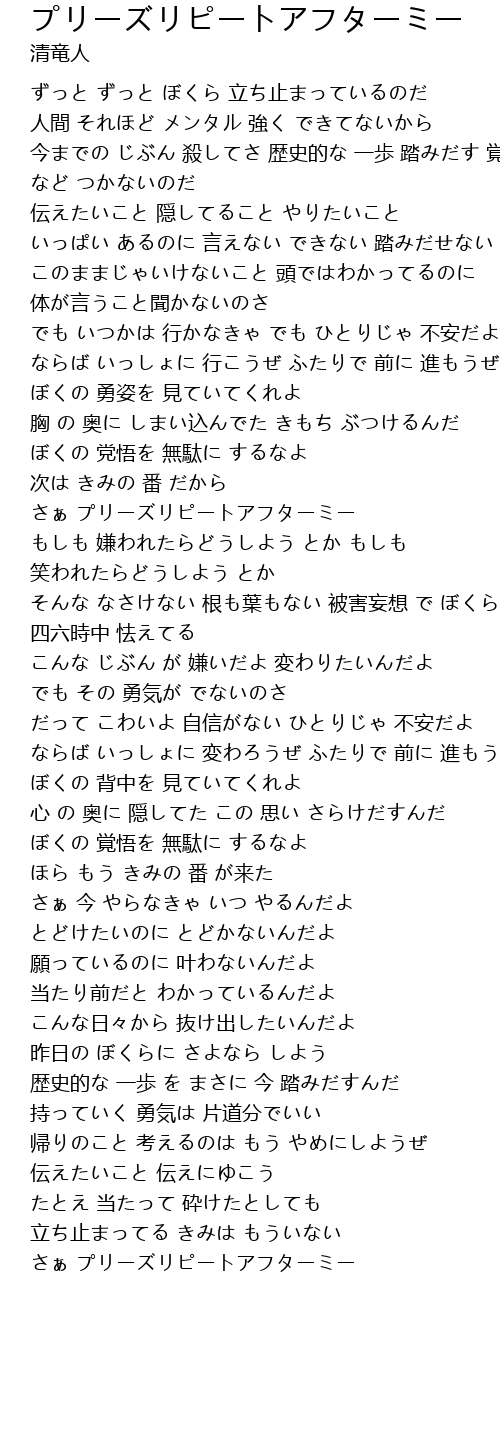 プリーズリピートアフターミー
清竜人
ずっと ずっと ぼくら 立ち止まっているのだ
人間 それほど メンタル 強く できてないから
今までの じぶん 殺してさ 歴史的な 一歩 踏みだす 覚
など つかないのだ
伝えたいこと 隠してること やりたいこと
いっぱい あるのに 言えない できない 踏みだせない
このままじゃいけないこと 頭ではわかってるのに
体が言うこと聞かないのさ
でも いつかは 行かなきゃ でも ひとりじゃ 不安だよ
ならば いっしょに 行こうぜ ふたりで 前に 進もうぜ
ぼくの 勇姿を 見ていてくれよ
胸 の 奥に しまい込んでた きもち ぶつけるんだ
ぼくの 党悟を 無駄に するなよ
次は きみの 番 だから
さぁ プリーズリピートアフターミー
もしも 嫌われたらどうしよう とか もしも
笑われたらどうしよう とか
そんな なさけない 根も葉もない 被害妄想 で ぼくら
四六時中 怯えてる
こんな じぶん が 嫌いだよ 変わりたいんだよ
でも その 勇気が でないのさ
だって こわいよ 自信がない ひとりじゃ 不安だよ
ならば いっしょに 変わろうぜ ふたりで 前に 進もう
ぼくの 背中を 見ていてくれよ
心 の 奥に 隠してた この 思い さらけだすんだ
ぼくの 覚悟を 無駄に するなよ
ほら もう きみの 番 が来た
さぁ 今 やらなきゃ いつ やるんだよ
とどけたいのに とどかないんだよ
願っているのに 叶わないんだよ
当たり前だと わかっているんだよ
こんな日々から 抜け出したいんだよ
昨日の ぼくらに さよなら しよう
歴史的な 一歩 を まさに 今 踏みだすんだ
持っていく 勇気は 片道分でいい
帰りのこと 考えるのは もう やめにしようぜ
伝えたいこと 伝えにゆこう
たとえ 当たって 砕けたとしても
立ち止まってる きみは もういない
さぁ プリーズリピートアフターミー